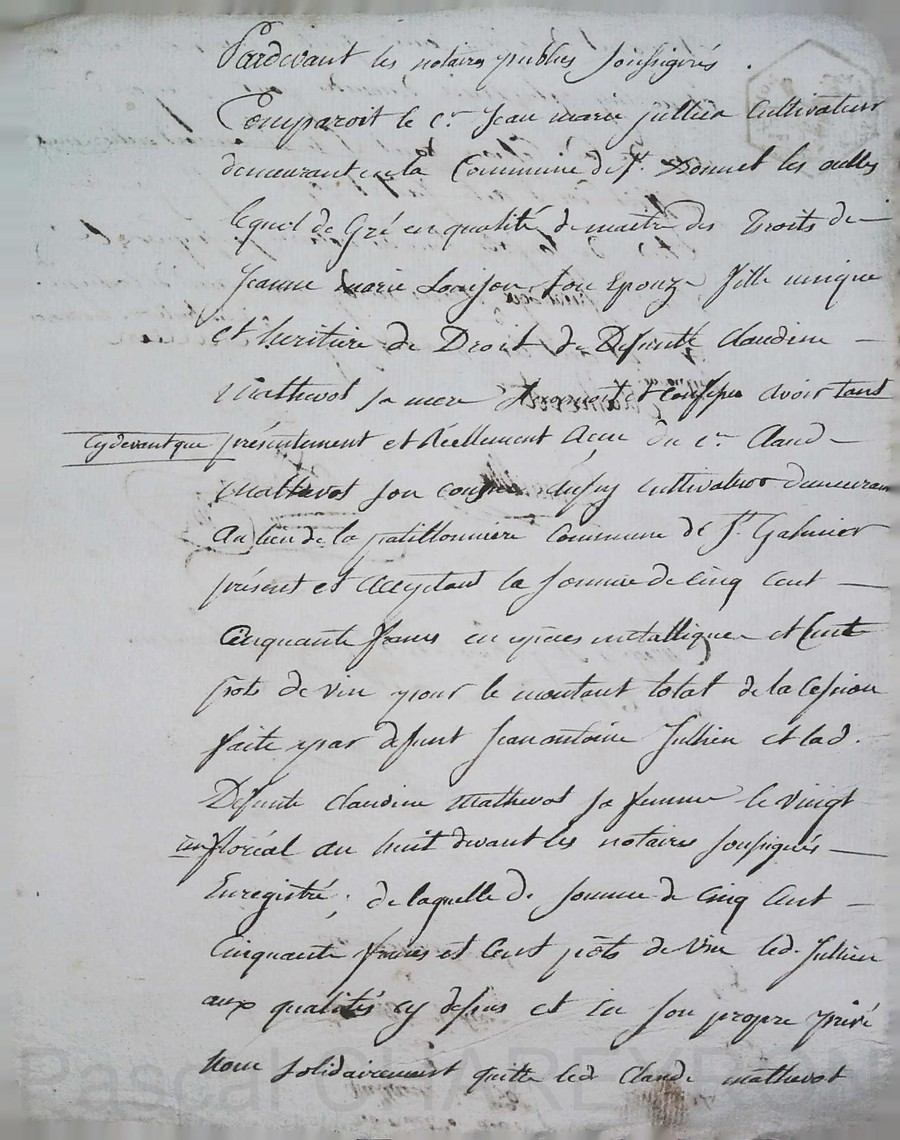 Pardevant les notaires publics soussignés.
Comparoit le c.r Jean marie jullien Cultivateur
demeurant en la Commune de St. Bonnet les oulles
lequel de Gré en qualité de maitre des Droits de
Jeanne marie son Epouze fille unique
et heritiere de Droit de Defunte Claudine
Mathevot sa mere et confesse avoir tant
cydevant que présentement et Réellement du c.r Claude
Mathevot son cultivateur demeurant
Au lieu de la commune de St. Galmier
présent et acceptant la somme de cinq cent
Cinquante francs en espèces metalliques et Cent
pots de vin pour le montant total de la Cession
faite par defunt Jean antoine Jullien et lad.
Defunte claudine Mathevot sa femme le vingt
un floréal an huit devant les notaires soussignés
Enregistré ; de laquelle de somme de Cinq Cent
Cinquante francs et Cent pots de Vin led. Jullien
aux qualités cy dessus et en son propre privé
nom solidairement quitte led. Claude mathevot
Pascal CHAREYRON